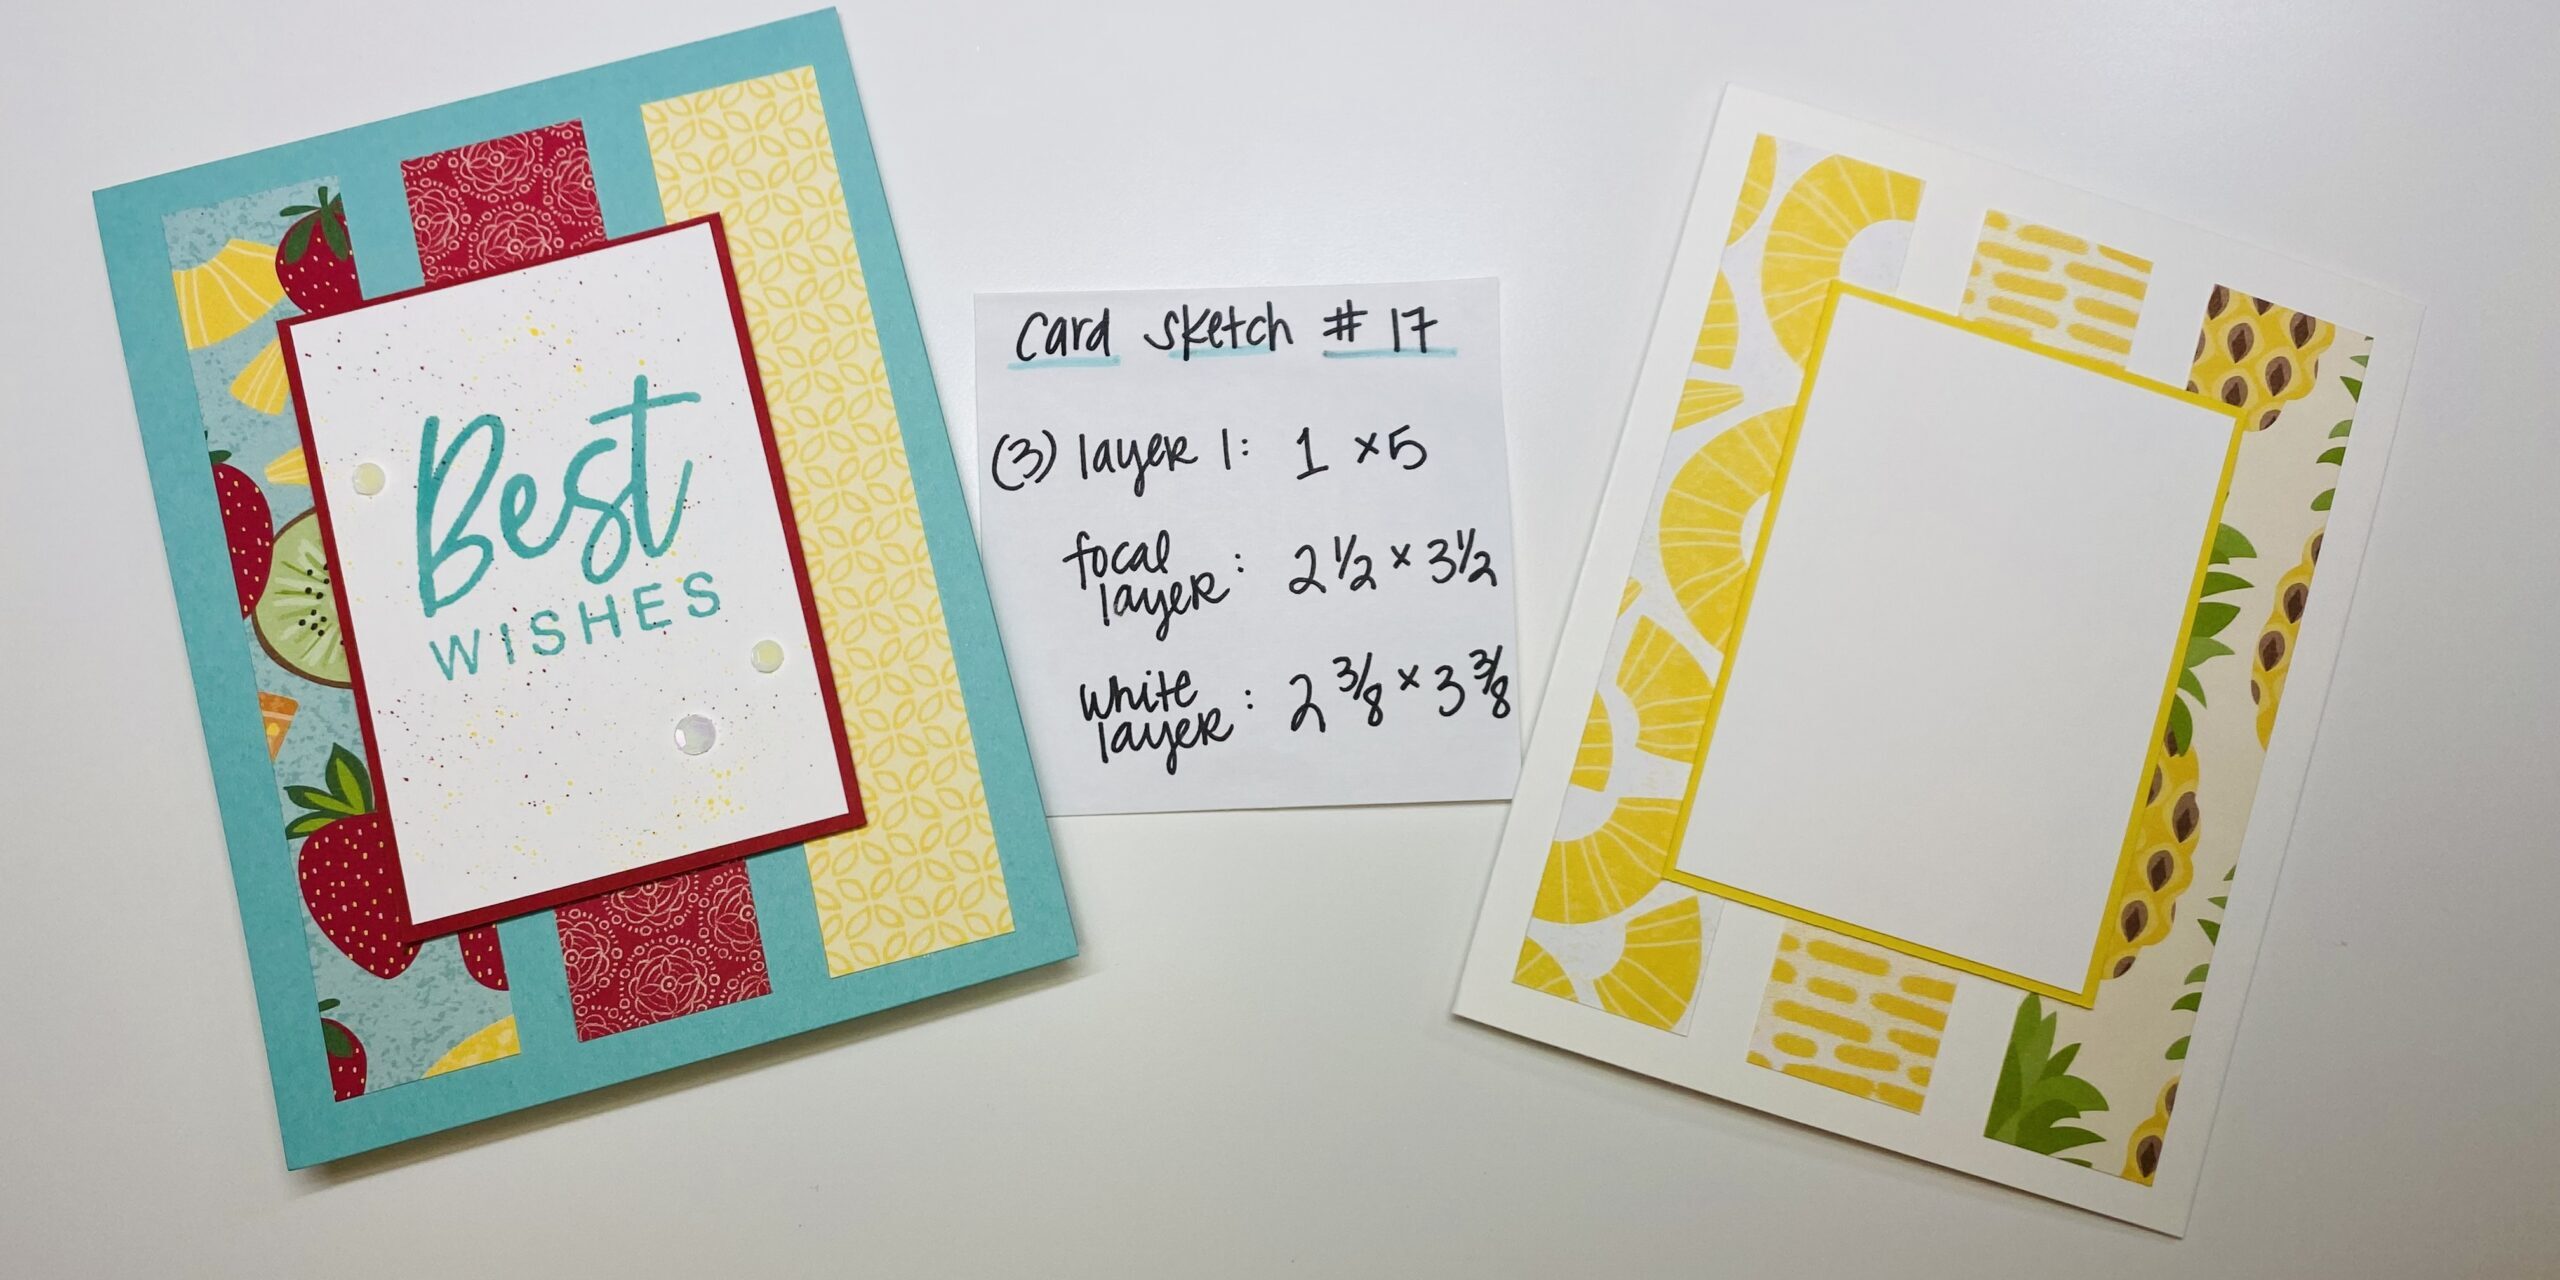 Best
WISHES
Card Sketch # 17
(3) layer 1: 1 x 5
focal
layer : 2 1/2 x 3 1/2
white
layer : 2 3/8 x 3 3/8